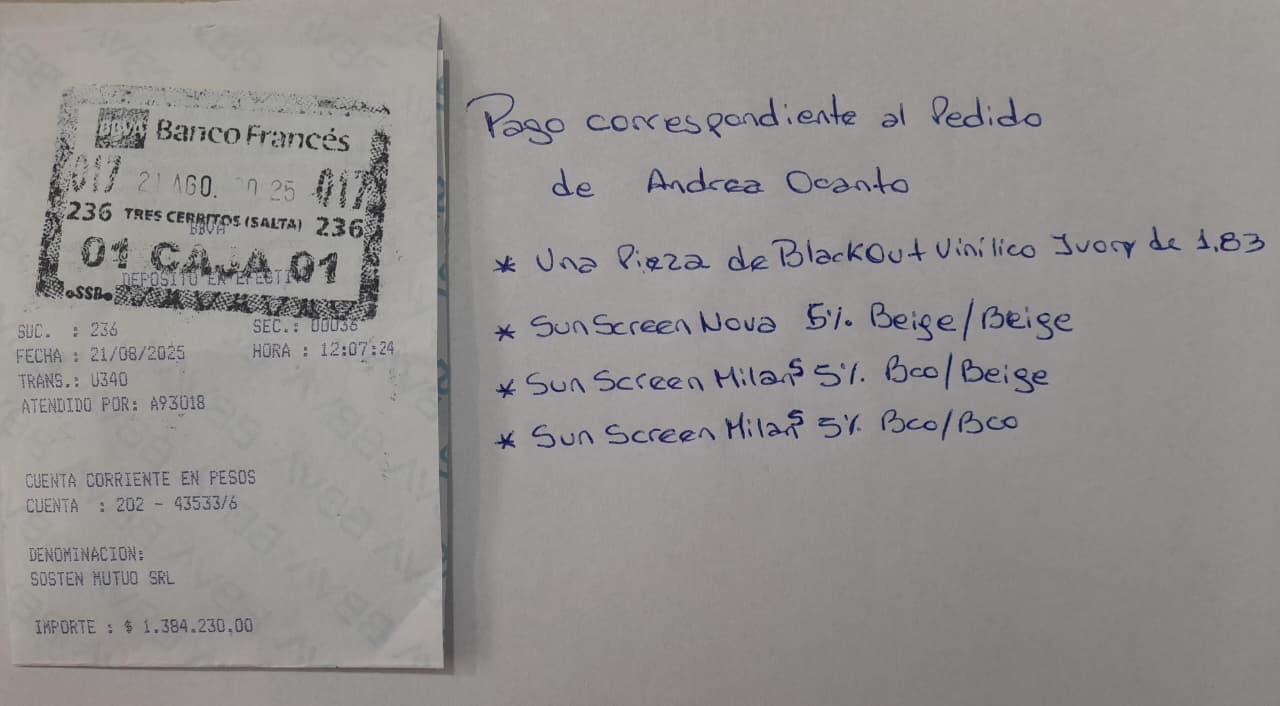 BBVA Banco Francés
017 21 AGO. 2025 017
236 TRES CERRITOS (SALTA) 236
BBVA
01 CAJA 01
DEPOSITO EN EFECTIVO
SSB
SUC. : 236 SEC.: 00036
FECHA : 21/08/2025 HORA : 12:07:24
TRANS.: U340
ATENDIDO POR: A93018
CUENTA CORRIENTE EN PESOS
CUENTA : 202 - 43533/6
DENOMINACION:
SOSTEN MUTUO SRL
IMPORTE : $ 1.384.230,00
Pago correspondiente al Pedido
de Andrea Ocanto
* Una Pieza de BlackOut Vinilico Ivory de 1.83
* SunScreen Nova 5% Beige/Beige
* Sun Screen Milan S 5% Bco/Beige
* Sun Screen Milan S 5% Bco/Bco